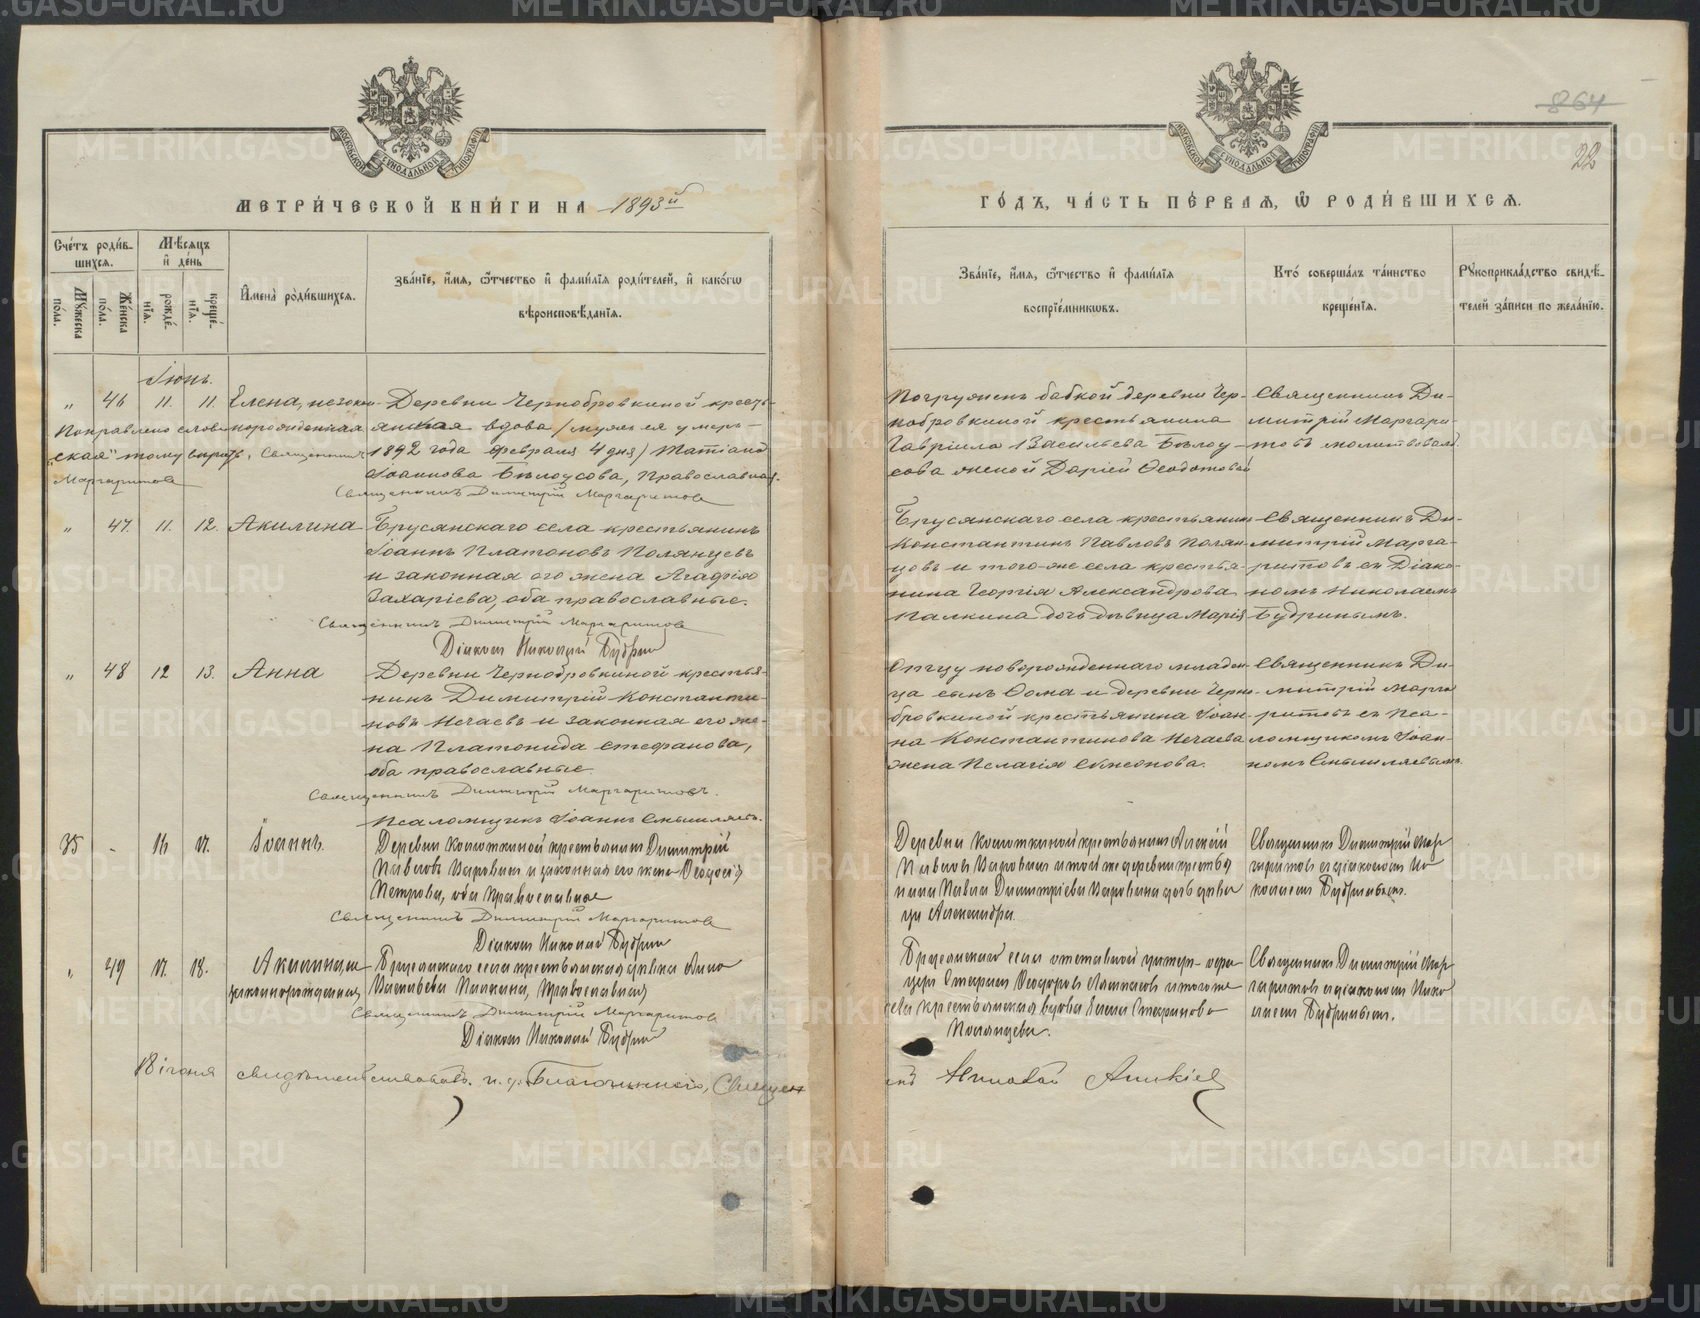 864
22
МЕТРИ́ЧЕСКОЙ КНИ́ГИ НА 1893й
ГО́ДЪ, ЧА́СТЬ ПЕ́РВАЯ, Ѡ РОДИ́ВШИХСЯ.
Сче́тъ роди́в-
шихся.
Му́жеска
по́ла.
Же́нска
по́ла.
Мѣ́сяцъ
и҆ де́нь
рожде́-
нїя.
креще́-
нїя.
И҆мена̀ роди́вшихся.
Зва́нїе, и҆́мя, ѻ҆́тчество и҆ фами́лїя роди́телей, и҆ како́гѡ
вѣроисповѣ́данїя.
Зва́нїе, и҆́мя, ѻ҆́тчество и҆ фами́лїя
воспрїе́мникѡвъ.
Кто̀ соверша́лъ та́инство
креще́нїя.
Рꙋкоприкла́дство свидѣ́-
телей за́писи по жела́нїю.
Іюнь.
„ 46 11. 11. Елена, незакон-
норожденная
Поправлено слово
„ская" тому вѣрить, Священникъ
Маргаритовъ
Деревни Чернобровкиной кресть-
янская вдова /мужъ ея умеръ
1892 года Февраля 4 дня/
Іоаннова Бѣлоусова, Православная.
Священникъ Димитрій Маргаритовъ
Погруженъ бабкой деревни Чер-
нобровкиной крестьянина
Гавріила Васильева Бѣлоу-
сова женой Дарьей Ѳеодотовой
Священникъ Ди-
митрій Маргари-
товъ молитвовалъ
„ 47. 11. 12. Акилина
Брусянскаго села крестьянинъ
Іоаннъ Платоновъ Полянцевъ
и законная его жена Агафія
Захаріева, оба православные.
Священникъ Димитрій Маргаритовъ
Діаконъ Николай Будринъ
Брусянскаго села крестьянинъ
Константинъ Павловъ Полян-
цовъ и того-же села крестья-
нина Георгія Александрова
Палкина дочь дѣвица Марія
Священникъ Ди-
митрій Марга-
ритовъ съ Діако-
номъ Николаемъ
Будринымъ.
„ 48 12 13. Анна
Деревни Чернобровкиной крестья-
нинъ Димитрій Константи-
новъ Нечаевъ и законная его же-
на Платонида Стефанова,
оба православные.
Священникъ Димитрій Маргаритовъ.
Псаломщикъ Іоаннъ
Отцу новорожденнаго младен-
ца сынъ Ѳома и деревни Черно-
бровкиной крестьянина Іоан-
на Константинова Нечаева
жена Пелагія Симеонова.
Священникъ Ди-
митрій Марга-
ритовъ съ Пса-
ломщикомъ Іоан-
номъ
35 - 16 17. Іоаннъ.
Деревни крестьянинъ Димитрій
Павловъ и законная его жена Ѳеодосія
Петрова, оба православные
Священникъ Димитрій Маргаритовъ
Діаконъ Николай Будринъ
Деревни крестьянинъ Алексій
Павловъ и той же деревни крестья
нина Павла Димитріева дочь дѣви
ца Александра
Священникъ Димитрій Мар
гаритовъ съ діакономъ Ни
колаемъ Будринымъ.
„ 49 17. 18. Акилина
незаконнорожденная
Брусянскаго села крестьянская дѣвка Анна
Васильева Палкина, Православная
Священникъ Димитрій Маргаритовъ
Діаконъ Николай Будринъ
Брусянскаго села отставной унтеръ-офи
церъ Стефанъ Ѳеодоровъ и того же
села крестьянская вдова Елена Стефанова
Полянцева.
Священникъ Димитрій Мар
гаритовъ съ діакономъ Нико
лаемъ Будринымъ.
18 іюня свидѣтельствовалъ. и. д. Благочиннаго, Священ
никъ Николай